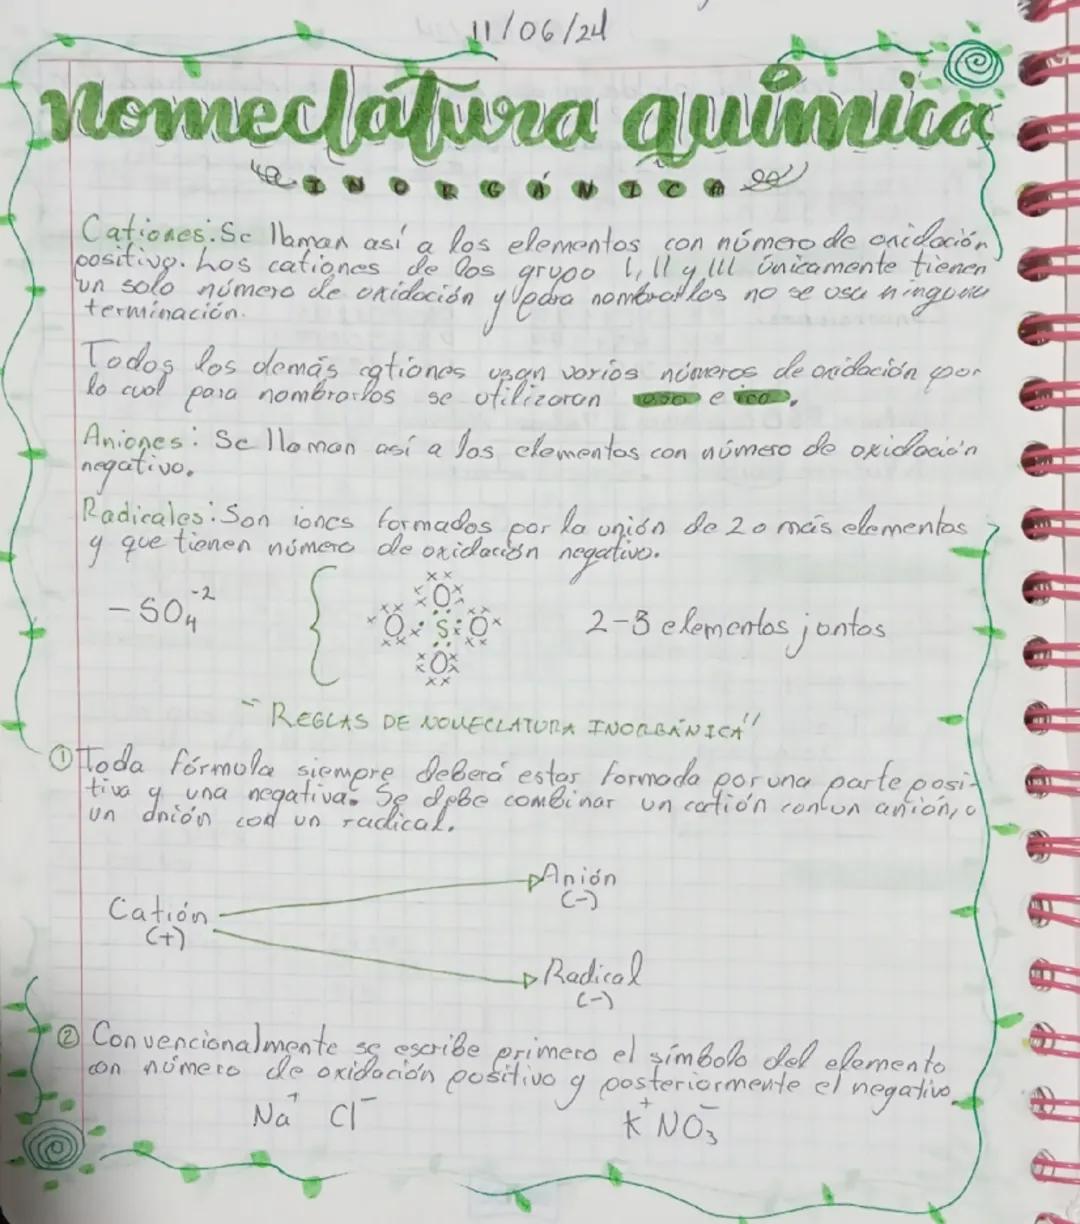 11/06/24
nomeclatura química
INORGÁNICA
Cationes: Se llaman así a los elementos con número de oxidación
positivo. Los cationes de los grupo I, II y III únicamente tienen
un solo número de oxidación y para nombrarlos no se usa ninguna
terminación.
Todos los demás cationes usan varios números de oxidación por
lo cual para nombrarlos se utilizaran oso e ico.
Aniones: Se llaman así a los elementos con número de oxidación
negativo.
Radicales: Son iones formados por la unión de 2 o más elementos
y que tienen número de oxidación negativo.
- SO₄⁻²
O
O S O
O
2-3 elementos juntos
"REGLAS DE NOMECLATURA INORGÁNICA"
① Toda fórmula siempre deberá estar formada por una parte posi-
tiva y una negativa. Se debe combinar un catión con un anión, o
un anión con un radical.
Anión
(-)
Catión
(+)
Radical
(-)
② Convencionalmente se escribe primero el símbolo del elemento
con número de oxidación positivo y posteriormente el negativo.
Na⁺ Cl⁻ K⁺ NO₃⁻